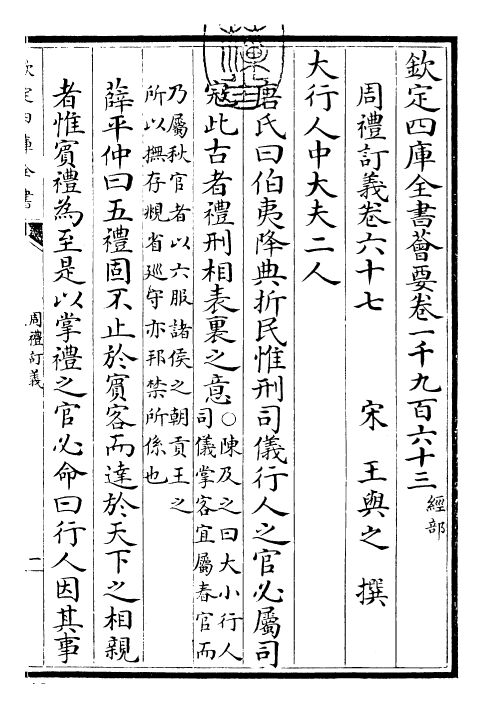 欽定四庫全書薈要卷一千九百六十三 經部
周禮訂義卷六十七 宋 王與之 撰
大行人中大夫二人
唐氏曰伯夷降典折民惟刑司儀行人之官必屬司
寇此古者禮刑相表裏之意○陳及之曰大小行人
司儀掌客宜屬春官而
乃屬秋官者以六服諸侯之朝貢王之
所以撫存頫省廵守亦邦禁所係也
薛平仲曰五禮固不止於賓客而達於天下之相親
者惟賓禮為至是以掌禮之官必命曰行人因其事
欽定四庫全書
周禮訂義